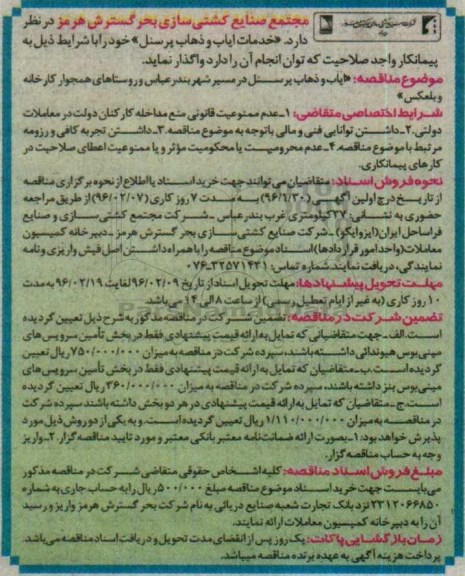 مجتمع صنایع کشتی‌سازی بحر گسترش هرمز در نظر
دارد. «خدمات ایاب و ذهاب پرسنل» خود را با شرایط ذیل به
پیمانکار واجد صلاحیت که توان انجام آن را دارد واگذار نماید.
موضوع مناقصه: «ایاب و ذهاب پرسنل در مسیر شهر بندرعباس و روستاهای همجوار کارخانه
و بلعکس»
شرایط اختصاصی متقاضی: ۱-عدم ممنوعیت قانونی منع مداخله کارکنان دولت در معاملات
دولتی. ۲-داشتن توانایی فنی و مالی با توجه به موضوع مناقصه. ۳-داشتن تجربه کافی و رزومه
مرتبط با موضوع مناقصه. ۴-عدم محرومیت یا محکومیت مؤثر و یا ممنوعیت اعطای صلاحیت در
کارهای پیمانکاری.
نحوه فروش اسناد: متقاضیان می‌توانند جهت خرید اسناد یا اطلاع از نحوه برگزاری مناقصه
از تاریخ درج اولین آگهی (۹۶/۱/۳۰) به مدت ۷ روز کاری (۹۶/۰۲/۰۷) از طریق مراجعه
حضوری به نشانی: ۳۷ کیلومتری غرب بندرعباس - شرکت مجتمع کشتی‌سازی و صنایع
فراساحل ایران (ایزوایکو) - شرکت صنایع کشتی‌سازی بحر گسترش هرمز - دبیرخانه کمیسیون
معاملات (واحد امور قراردادها) اسناد موضوع مناقصه را با همراه داشتن اصل فیش واریزی و نامه
نمایندگی، دریافت نمایند. شماره تماس: ۳۲۵۷۱۴۳۱-۰۷۶
مهلت تحویل پیشنهادها: مهلت تحویل اسناد از تاریخ ۹۶/۰۲/۰۹ لغایت ۹۶/۰۲/۱۹ به مدت
۱۰ روز کاری (به غیر از ایام تعطیل رسمی) از ساعت ۸ الی ۱۴ می‌باشد.
تضمین شرکت در مناقصه: تضمین شرکت در مناقصه مذکور به شرح ذیل تعیین گردیده
است. الف- جهت متقاضیانی که تمایل به ارائه قیمت پیشنهادی فقط در بخش تأمین سرویس‌های
مینی‌بوس هیوندائی داشته باشند، سپرده شرکت در مناقصه به میزان ۷۵۰/۰۰۰/۰۰۰ ریال تعیین
گردیده است. ب- متقاضیان که تمایل به ارائه قیمت پیشنهادی فقط در بخش تأمین سرویس‌های
مینی‌بوس بنز داشته باشند، سپرده شرکت در مناقصه به میزان ۳۶۰/۰۰۰/۰۰۰ ریال تعیین گردیده
است. ج- متقاضیان که تمایل به ارائه قیمت پیشنهادی در هر دو بخش داشته باشند سپرده شرکت
در مناقصه به میزان ۱/۱۱۰/۰۰۰/۰۰۰ ریال تعیین گردیده است. و به یکی از دو روش ذیل مورد
پذیرش خواهد بود: ۱-بصورت ارائه ضمانت‌نامه معتبر بانکی معتبر و مورد تایید مناقصه گزار. ۲-واریز
وجه به حساب مناقصه گزار.
مبلغ فروش اسناد مناقصه: کلیه اشخاص حقوقی متقاضی شرکت در مناقصه مذکور
می‌بایست جهت خرید اسناد موضوع مناقصه مبلغ ۵۰۰/۰۰۰ ریال را به حساب جاری به شماره
۲۳۱۲۰۶۶۸۵۰ نزد بانک تجارت شعبه صنایع دریائی به نام شرکت بحر گسترش هرمز واریز و رسید
آن را به دبیرخانه کمیسیون معاملات ارائه نمایند.
زمان بازگشایی پاکات: یک روز پس از انقضای مدت تحویل و دریافت اسناد مناقصه می‌باشد.
پرداخت هزینه آگهی به عهده برنده مناقصه میباشد.